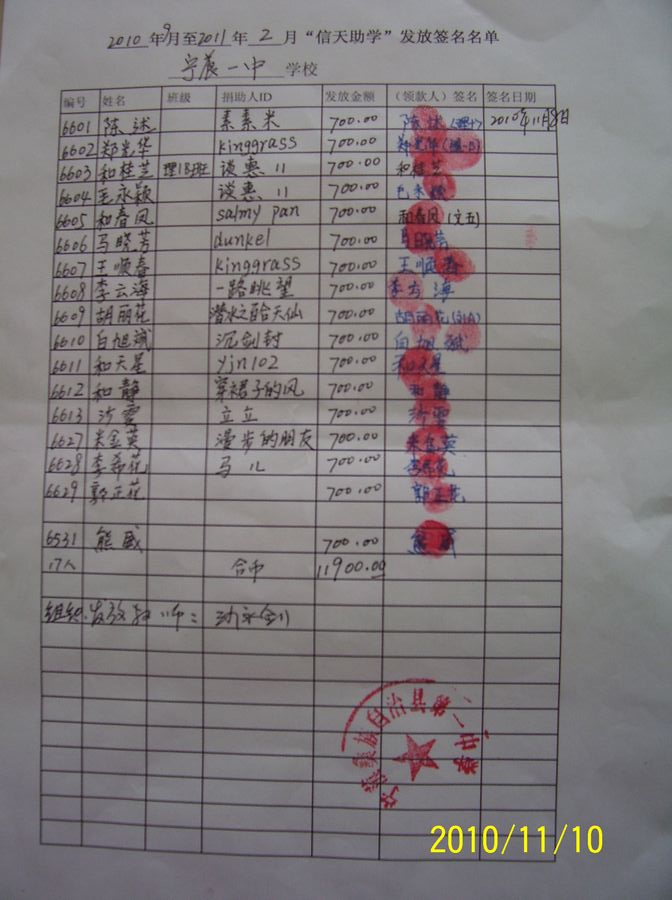 2010年9月至2011年2月“信天助学”发放签名名单
宁蒗一中学校
编号 姓名 班级 捐助人ID 发放金额 (领款人)签名 签名日期
6601 陈述 素素米 700.00 陈述 2010年11月8日
6602 郑光华 kinggrass 700.00 郑光华
6603 和桂芝 理18班 谈惠11 700.00 和桂芝
6604 毛永颖 谈惠11 700.00 毛永颖
6605 和春凤 salmy pan 700.00 和春凤(文五)
6606 马晓芳 dunkel 700.00 马晓芳
6607 王顺春 kinggrass 700.00 王顺春
6608 李云海 一路眺望 700.00 李云海
6609 胡丽花 潜水之百合天仙 700.00 胡丽花
6610 白旭斌 沉剑封 700.00 白旭斌
6611 和天星 yjn102 700.00 和天星
6612 和静 穿裙子的风 700.00 和静
6613 沂雯 立立 700.00 沂雯
6627 朱金英 漫步的朋友 700.00 朱金英
6628 李希花 马儿 700.00 李希花
6629 郭正花 700.00 郭正花
6531 熊威 700.00 熊威
17人 合中 11900.00
组织发放教师:
2010/11/10